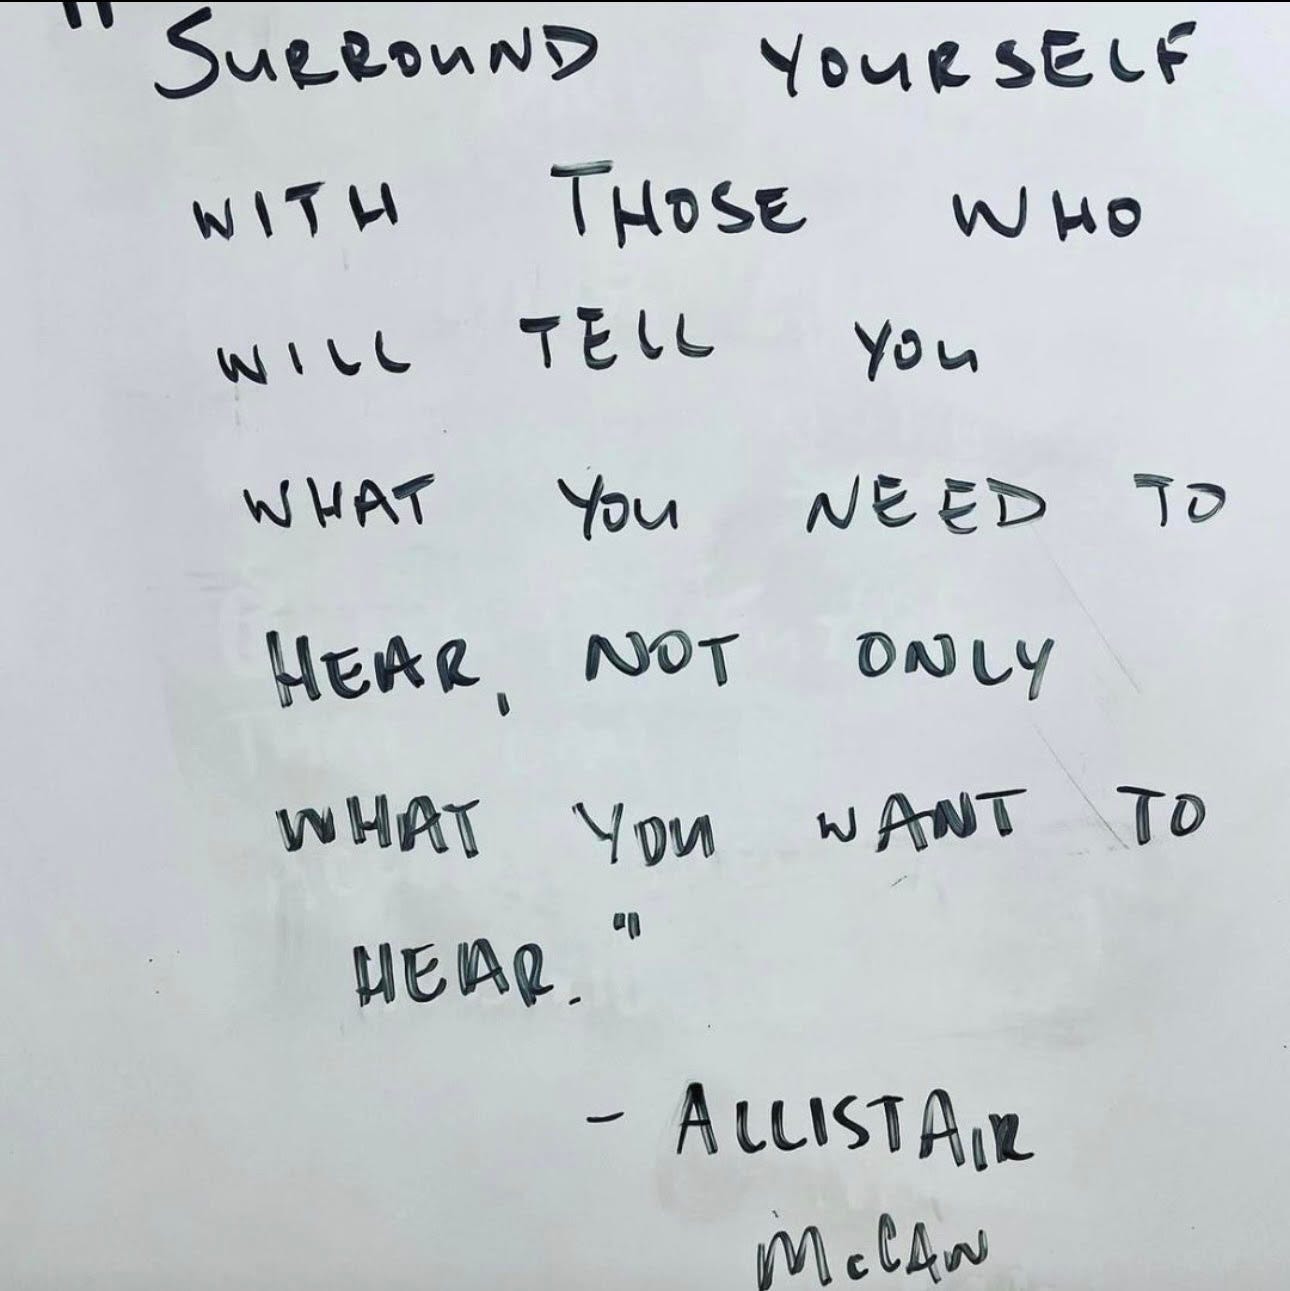 "SURROUND YOURSELF
WITH THOSE WHO
WILL TELL YOU
WHAT YOU NEED TO
HEAR, NOT ONLY
WHAT YOU WANT TO
HEAR."
- ALLISTAIR
McCAW